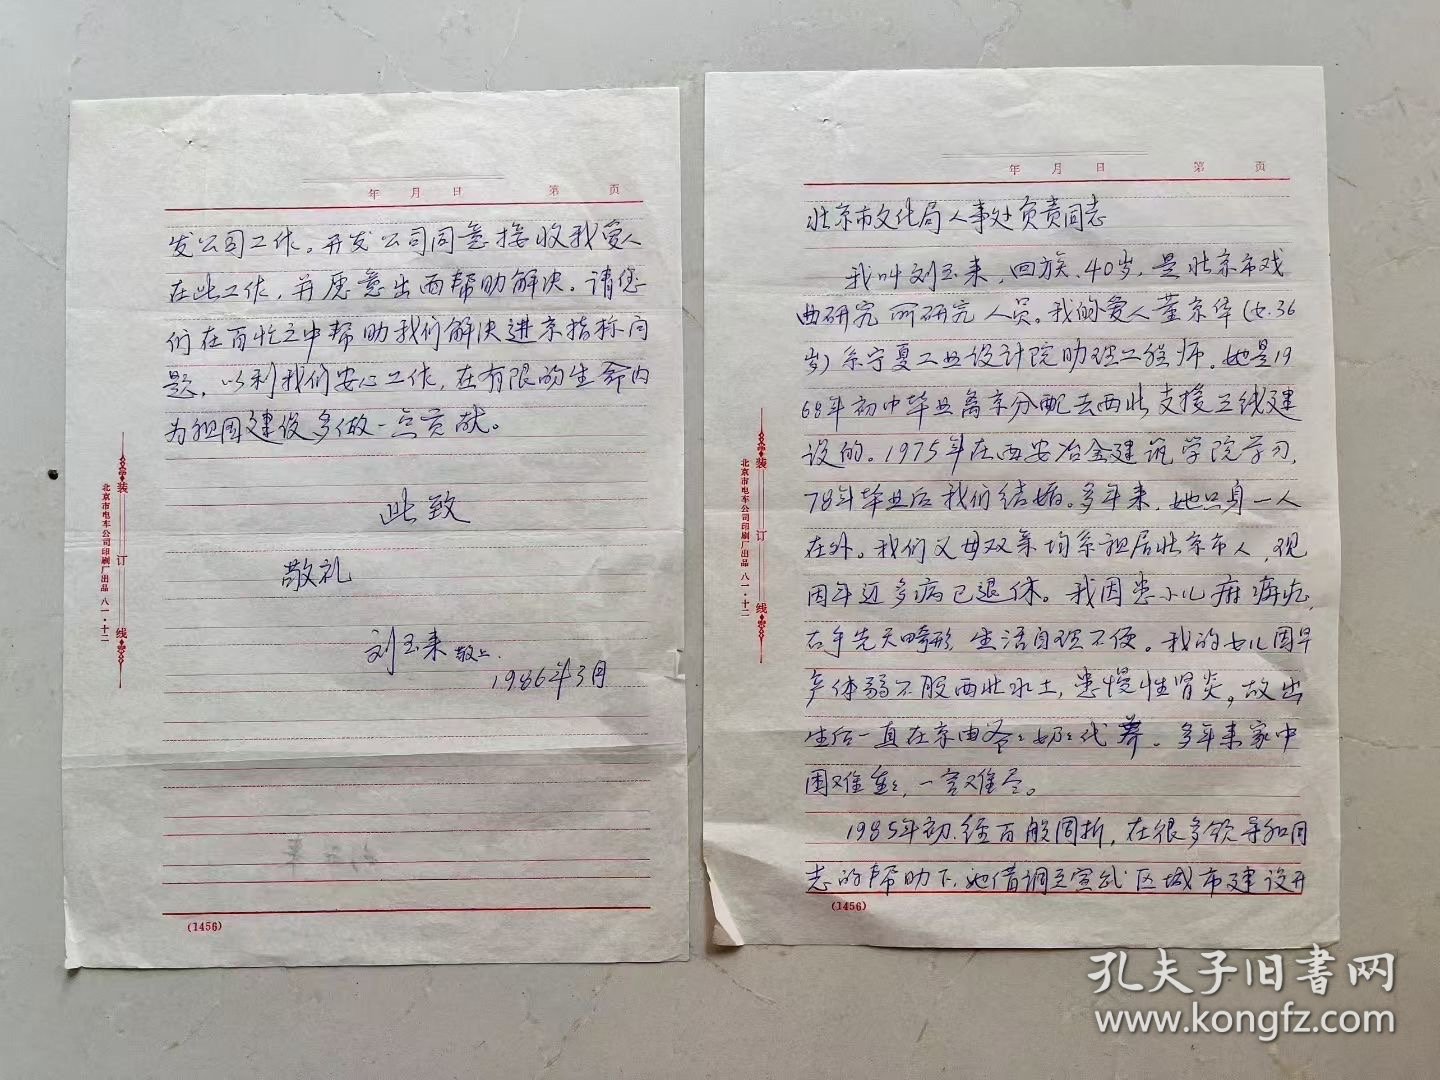 年 月 日 第 页
北京市文化局人事处负责同志
我叫刘玉来，回族、40岁，是北京市戏
曲研究所研究人员。我的爱人董京华（女.36
岁）系宁夏工业设计院助理工程师。她是19
68年初中毕业离京分配去西北支援三线建
设的。1975年在西安冶金建筑学院学习，
78年毕业后我们结婚。多年来，她只身一人
在外。我们父母双亲均系祖居北京市人，现
因年迈多病已退休。我因患小儿麻痹症，
右手先天畸形 生活自理不便。我的女儿因早
产体弱不服西北水土，患慢性肾炎。故出
生后一直在京由爷爷奶奶代养。多年来家中
困难重重，一言难尽。
1985年初.经百般周折，在很多领导和同
志的帮助下.她借调至宣武区城市建设开
(1456)
装订线
北京市电车公司印刷厂出品 八一·十二
年 月 日 第 页
发公司工作。开发公司同意接收我爱人
在此工作，并愿意出面帮助解决。请您
们在百忙之中帮助我们解决进京指标问
题，以利我们安心工作，在有限的生命内
为祖国建设多做一点贡献。
此致
敬礼
刘玉来敬上.
1986年3月
(1456)
装订线
北京市电车公司印刷厂出品 八一·十二
孔夫子旧书网
www.kongfz.com